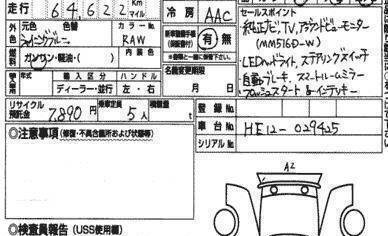 走行 64,622 Km マイル
冷房 AAC
セールスポイント
純正ナビ,TV,アラウンドビューモニター
(MM516D-W)
LEDヘッドライト ステアリングスイッチ
自動ブレーキ スマートルームミラー
プッシュスタート&インテキー
外色 元色 色替 カラーNo.
RAW
燃料 ガソリン・軽油・( ) 内装色
有・無
年式 輸入区分 ハンドル
ディーラー・並行 左・右
名義変更期限
月 日
リサイクル預託金 7,890円 乗車定員 5人 積載量 t
登録No.
車台No. HE12-029425
シリアルNo.
◎注意事項(修復・不具合箇所および状態等)
A2
◎検査員報告(USS使用欄)